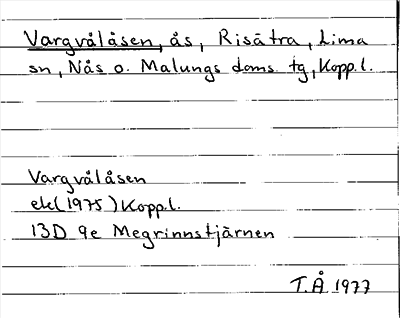 Vargvålåsen, ås, Risätra, Lima
sn, Nås o. Malungs doms. tg, Kopp.l.
Vargvålåsen
ek(1975)Kopp.l.
13D 9e Megrinnstjärnen
T.Å 1977